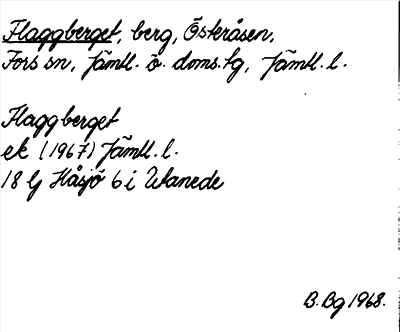 Flaggberget, berg, Österåsen,
Fors sn, Jämtl. ö. doms. tg, Jämtl. l.
Flaggberget
ek (1967) Jämtl. l.
18 G Håsjö 6 i
B. Bg 1968.